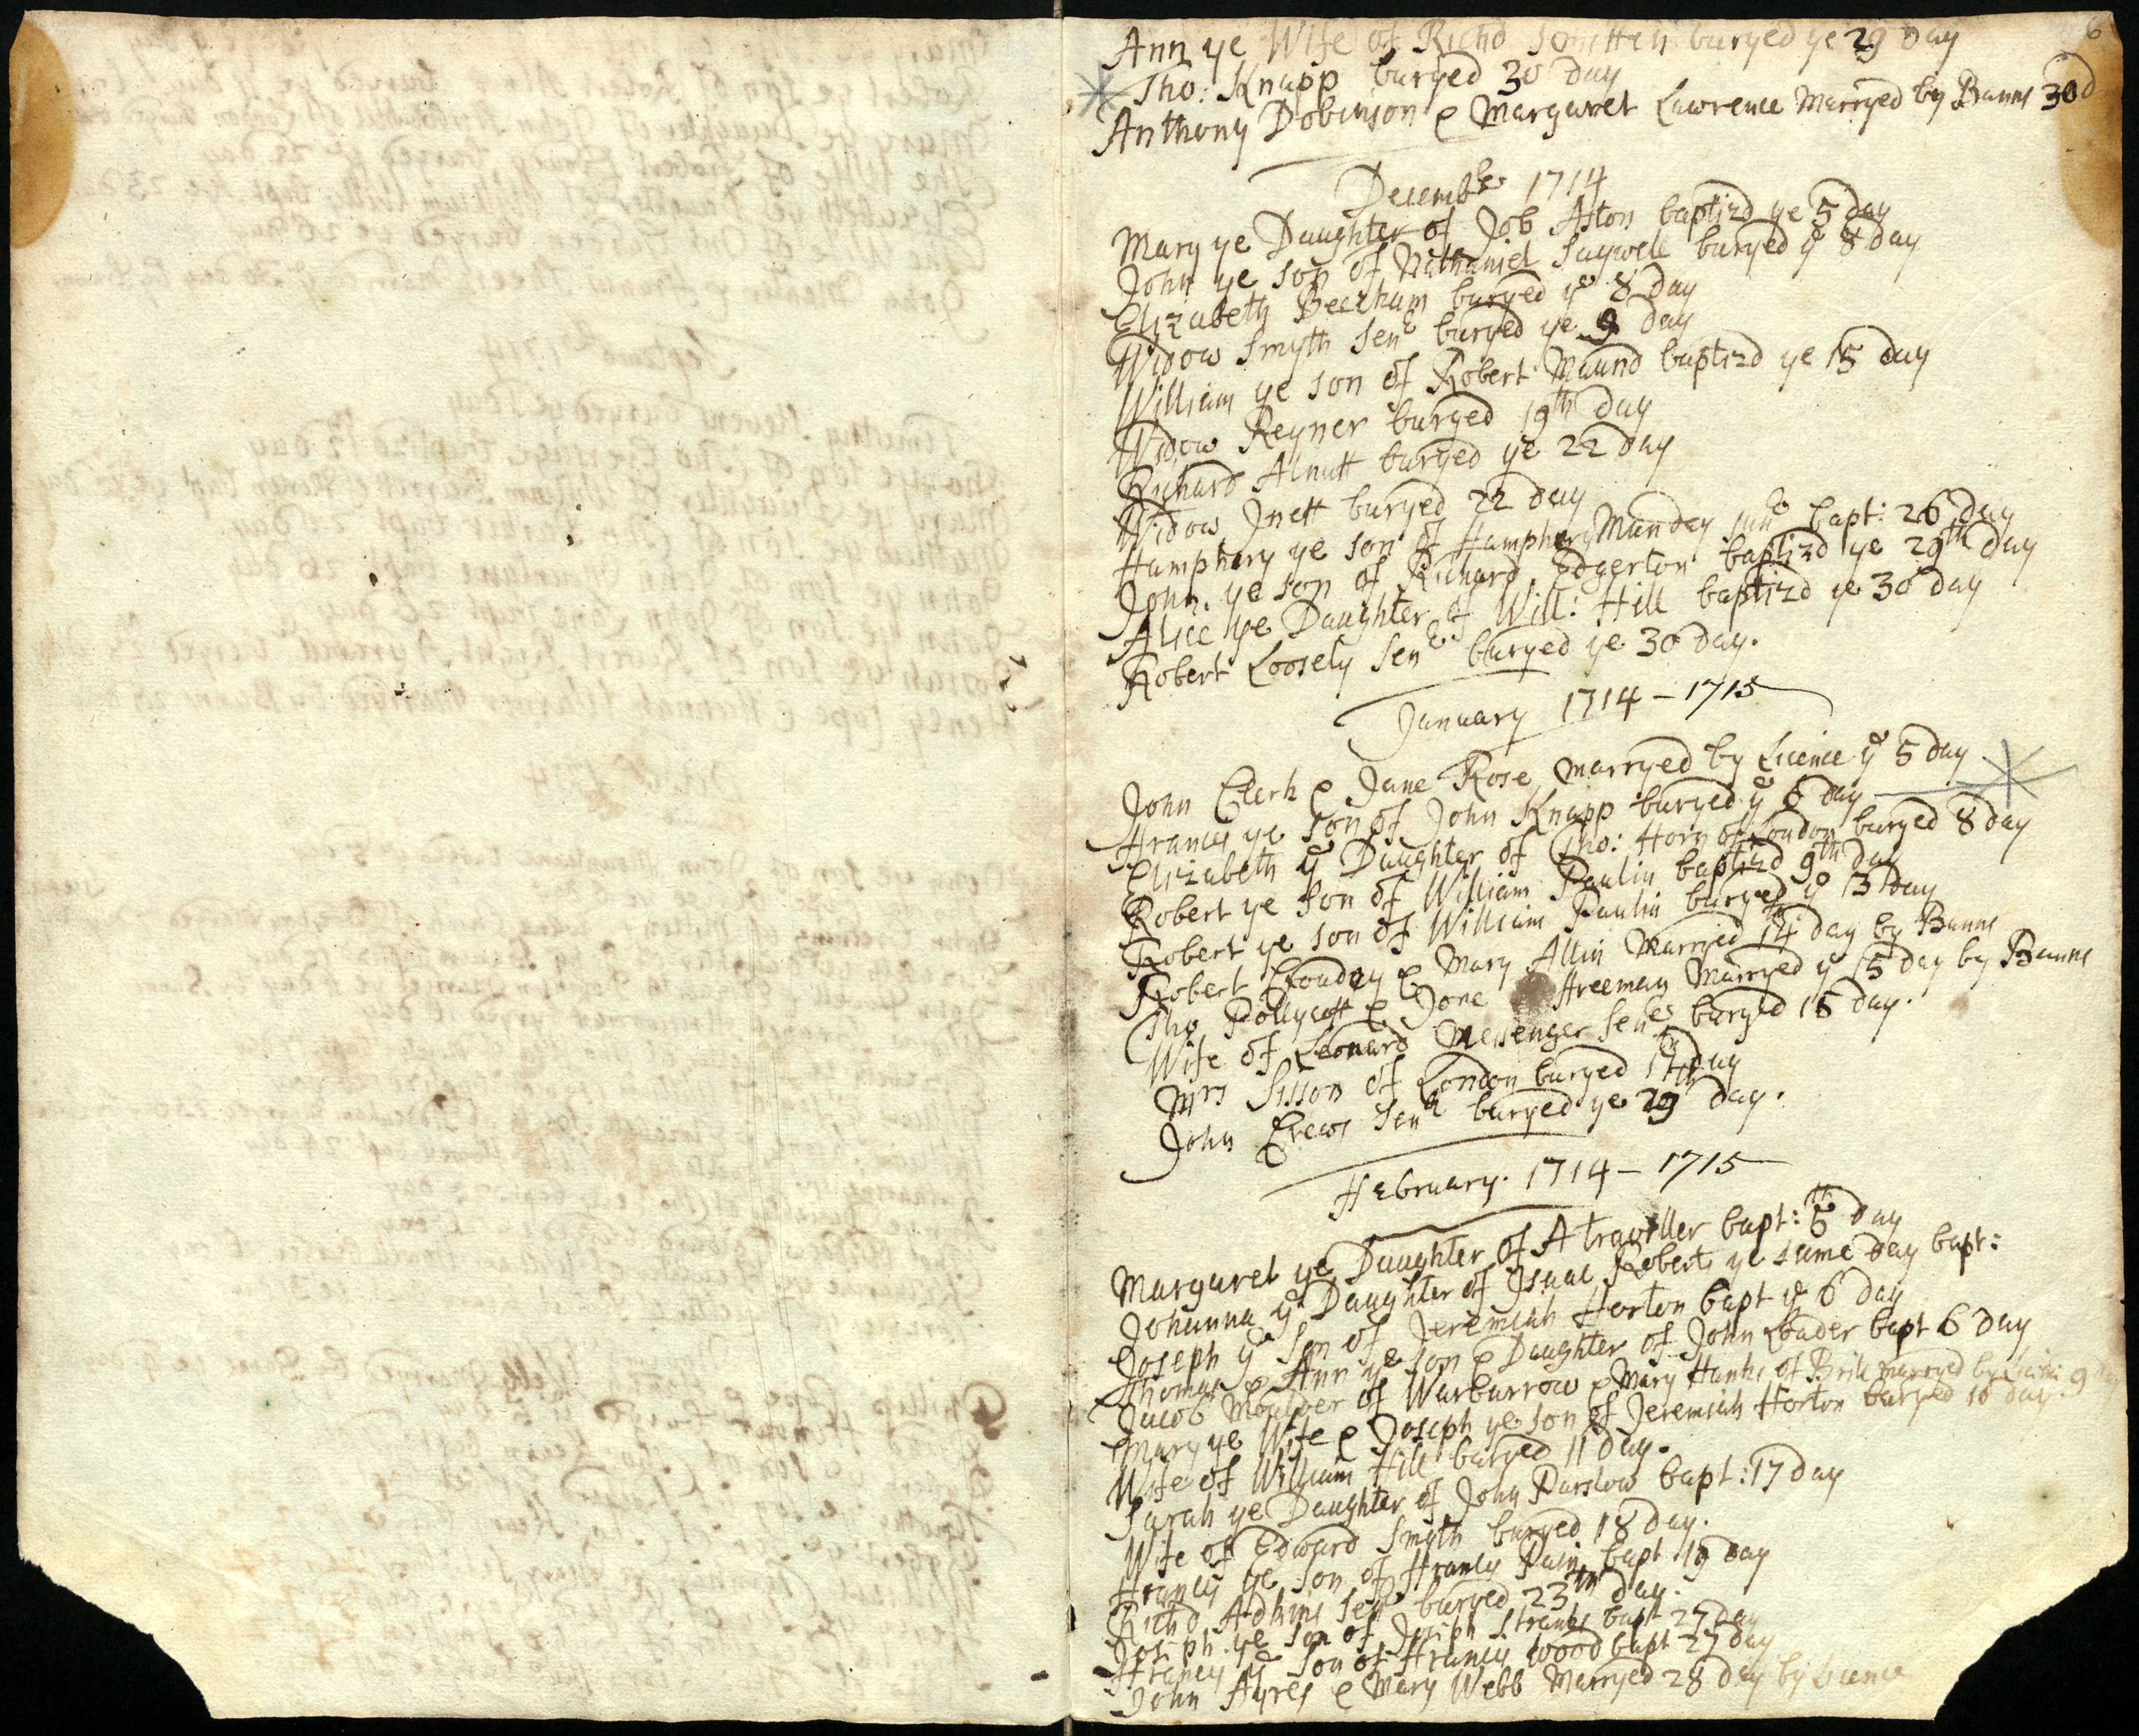 6
Ann ye Wife of Richd buryed ye 29 day
Tho: Knapp buryed 30 day
Anthony Dobinson & Margaret Lawrence Marryed by Banns 30 d
Decembr 1714
Mary ye Daughter of Job Aston baptizd ye 5 day
John ye son of Nathaniel Saywell buryed ye 8 day
Elizabeth Beecham buryed ye 8 day
Widow Smyth Senr buryed ye 9 day
William ye son of Robert Maund baptizd ye 15 day
Widow Reyner buryed 19th day
Richard Alnutt buryed ye 22 day
Widow Jnett buryed 22 day
Humphery ye son of Humphery Munday junr bapt: 26 day
John ye son of Richard Edgerton baptizd ye 29th day
Alice ye Daughter of Will: Hill baptizd ye 30 day
Robert Loosely Senr buryed ye 30 day.
January 1714 - 1715
John Clerk & Jane Rose marryed by Licence ye 5 day
Francis ye son of John Knapp buryed ye 6 day
Elizabeth ye Daughter of Tho: Horn of London buryed 8 day
Robert ye son of William Paulin baptizd 9th day
Robert ye son of William Paulin buryed ye 13 day
Robert & Mary Allin Marryed 14th day by Banns
Tho Pollycott & Jone Freeman Marryed ye 15 day by Banns
Wife of Leonard Messenger Senr buryed 15 day.
Mrs Sisson of London buryed 17th day
John Crews Senr buryed ye 29th day.
February. 1714 - 1715
Margaret ye Daughter of A traviller bapt: 5th day
Johanna ye Daughter of Isaac Roberts ye same day bapt:
Joseph ye son of Jeremiah Horton bapt ye 6 day
Thomas & Ann ye son & Daughter of John Loader bapt 6 day
Jacob Moulder of Warburrow & Mary Hanks of Brill marryed by Licin: 9 day
Mary ye Wife & Joseph ye son of Jeremiah Horton buryed 10 day
Wife of William Hill buryed 11 day.
Sarah ye Daughter of John Parslow bapt: 17 day
Wife of Edward Smyth buryed 18 day.
Francis ye son of Francis Pain bapt 19 day
Richd Adkins Senr buryed 23th day.
Joseph ye son of Joseph Stranks bapt 27 day
Francis ye son of Francis Wood bapt 27 day
John Ayres & Mary Webb Marryed 28 day by Licence